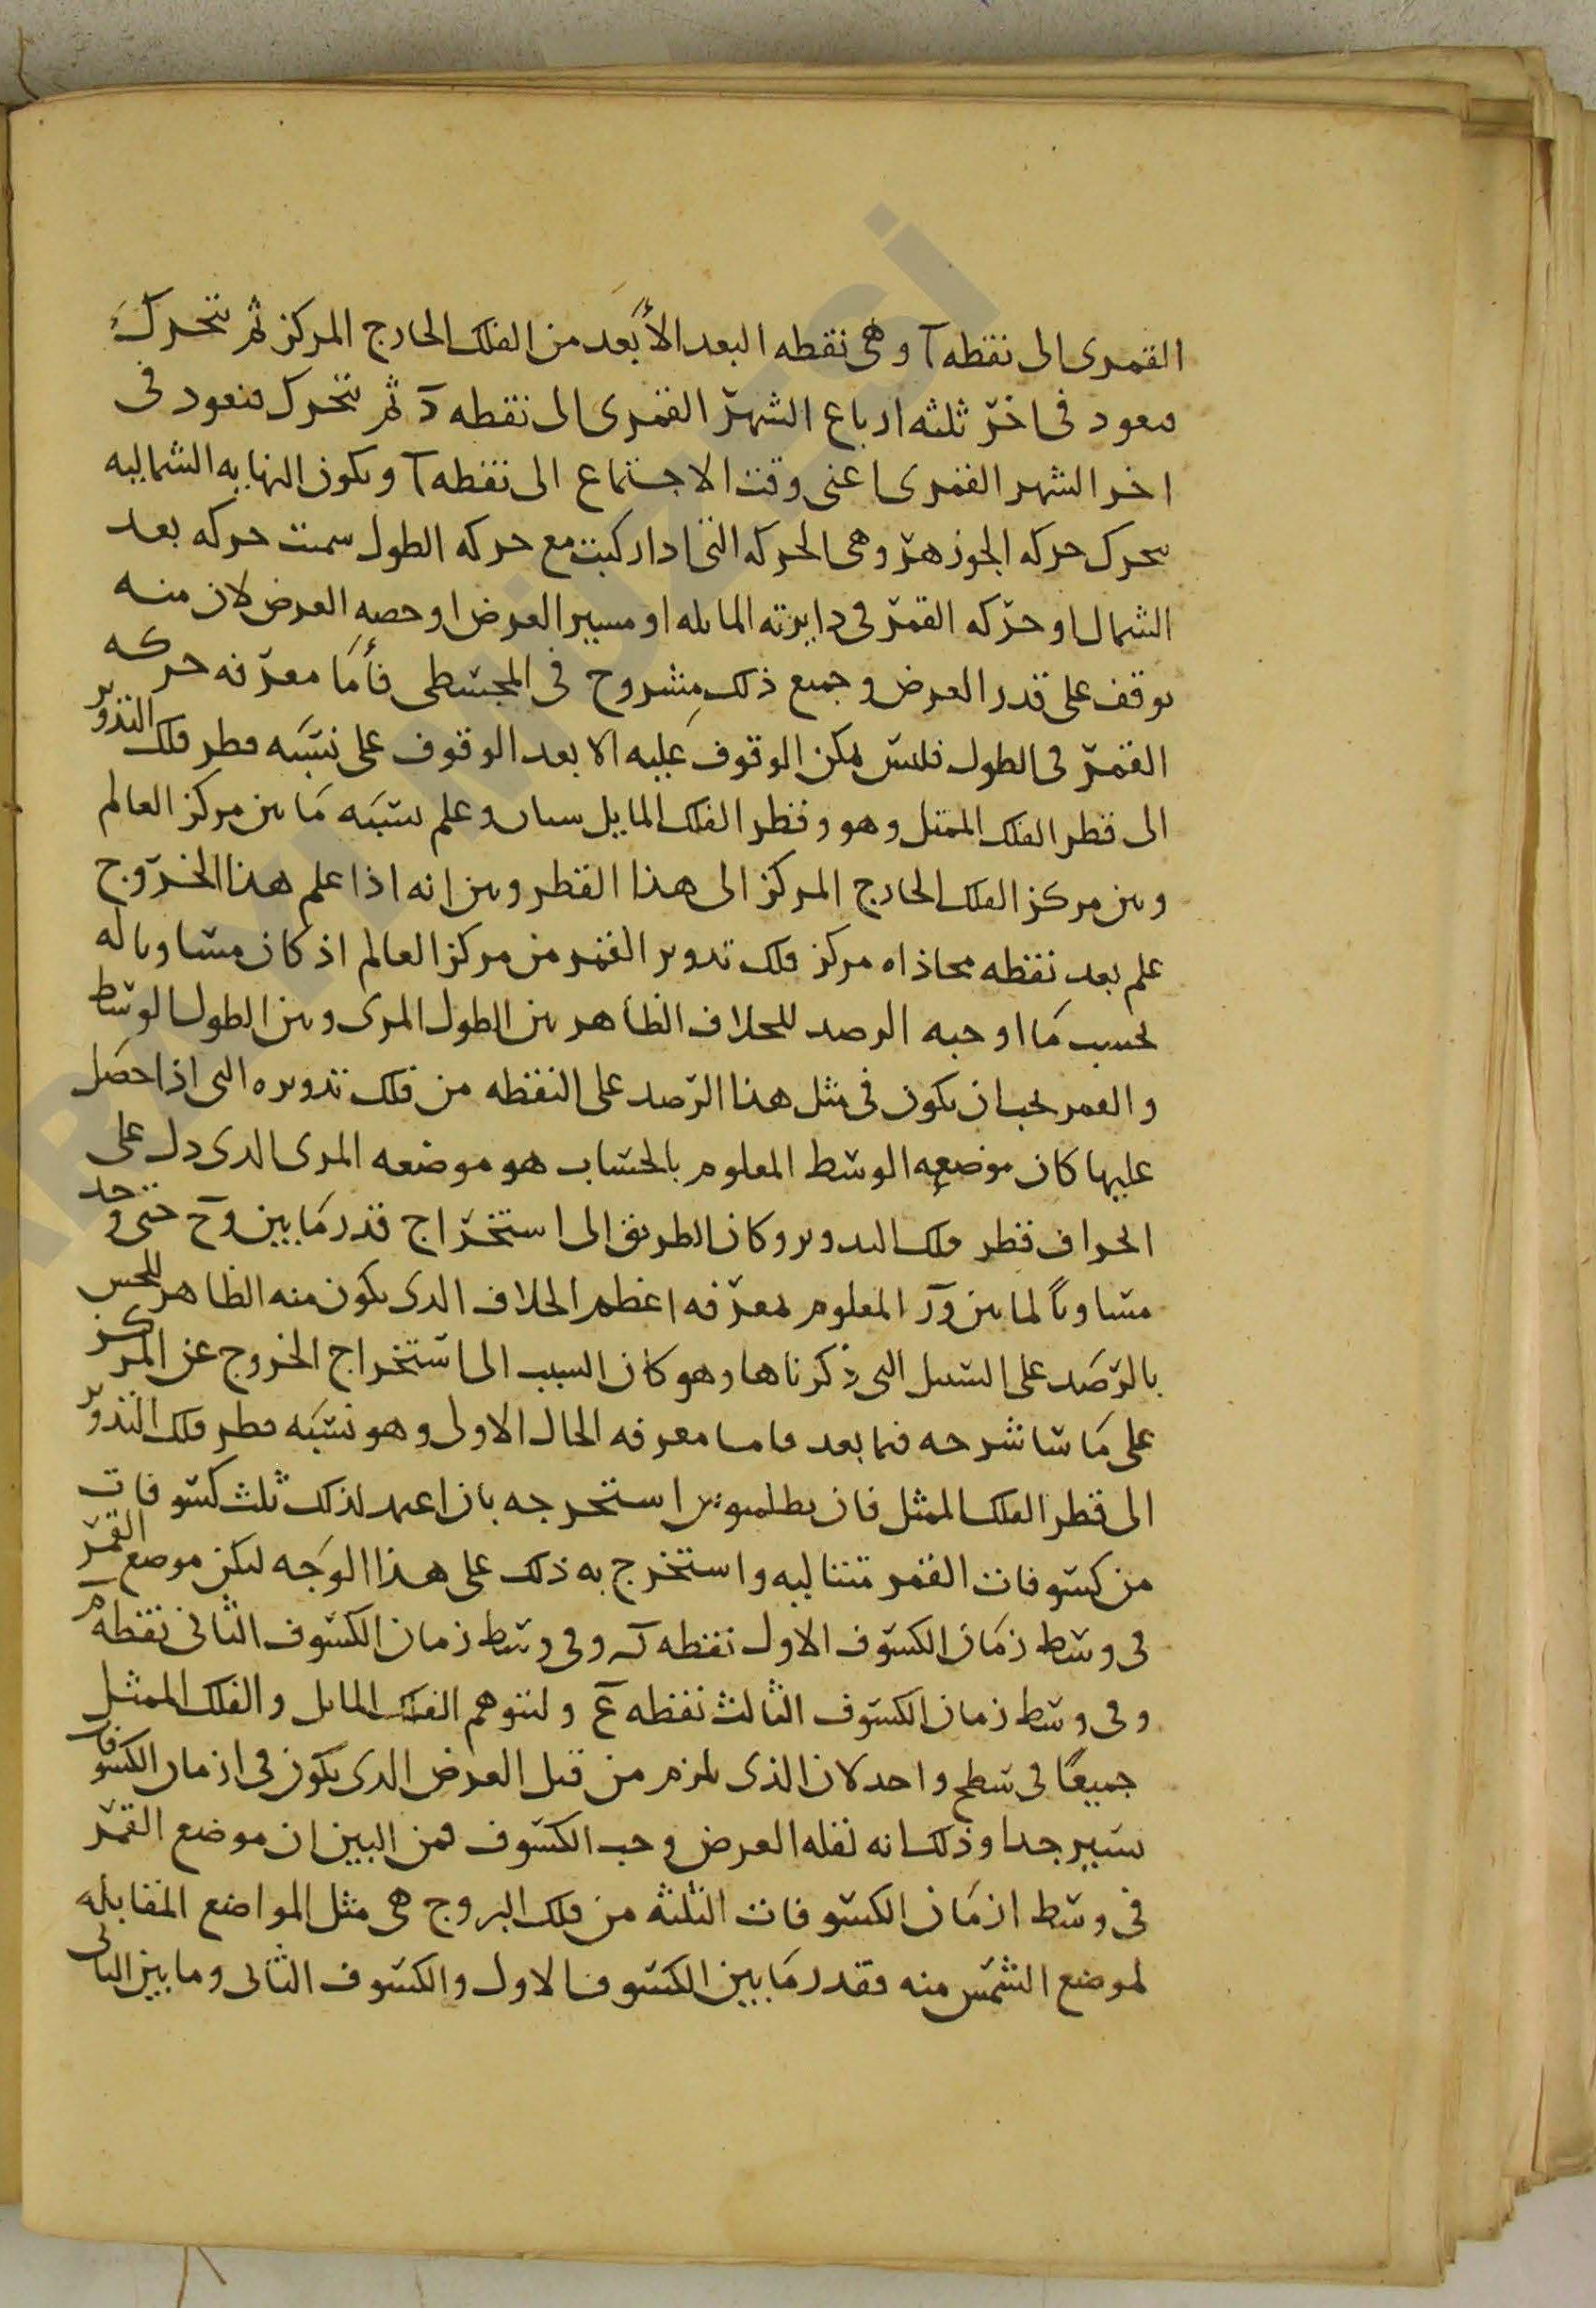 القمرى الى نقطه آ وهى نقطه البعد الأبعد من الفلك الخارج المركز ثم يتحرك
فيعود فى اخر ثلثه ارباع الشهر القمرى الى نقطه د ثم يتحرك فيعود فى
اخر الشهر القمرى اعنى وقت الاجتماع الى نقطه آ ويكون النهايه الشماليه
تتحرك حركه الجوزهر وهى الحركه التى اذا ركبت مع حركه الطول سميت حركه بعد
الشمال او حركه القمر فى دايرته المايله او مسير العرض او حصه العرض لان منه
يوقف على قدر العرض وجميع ذلك مشروح فى المجسطى فأما معرفه حركه
القمر فى الطول فليس يمكن الوقوف عليه الا بعد الوقوف على نسبه قطر فلك التدوير
الى قطر الفلك الممثل وهو وقطر الفلك المايل سيان وعلم نسبه ما بين مركز العالم
وبين مركز الفلك الخارج المركز الى هذا القطر وبين انه اذا علم هذا الخروج
علم بعد نقطه محاذاه مركز فلك تدوير القمر من مركز العالم اذ كان مساويا له
بحسب ما اوجبه الرصد للخلاف الظاهر بين الطول المرى وبين الطول الوسط
والقمر يجب ان يكون فى مثل هذا الرصد على النقطه من فلك تدويره التى اذا حصل
عليها كان موضعه الوسط المعلوم بالحساب هو موضعه المرى الذى دل على
انحراف قطر فلك التدوير وكان الطريق الى استخراج قدر ما بين وح حتى وجد
مساويا لما بين ور المعلوم بمعرفه اعظم الخلاف الذى يكون منه الظاهر للحس
بالرصد على السبيل التى ذكرناها وهو كان السبب الى استخراج الخروج عن المركز
على ما سانشرحه فيما بعد فاما معرفه الحال الاولى وهو نسبه قطر فلك التدوير
الى قطر الفلك الممثل فان بطلميوس استخرجه بان اعتمد لذلك ثلث كسوفات
من كسوفات القمر متتاليه واستخرج به ذلك على هذا الوجه ليكن موضع القمر
فى وسط زمان الكسوف الاول نقطه وفى وسط زمان الكسوف الثانى نقطه م
وفى وسط زمان الكسوف الثالث نقطه ع ولنتوهم الفلك المايل والفلك الممثل
جميعا فى سطح واحد لان الذى يلزم من قبل العرض الذى يكون فى ازمان الكسوفات
يسير جدا وذلك انه لقله العرض وجب الكسوف فمن البين ان موضع القمر
فى وسط ازمان الكسوفات الثلثه من فلك البروج هى مثل المواضع المقابله
لموضع الشمس منه فقدر ما بين الكسوف الاول والكسوف الثانى وما بين الثانى